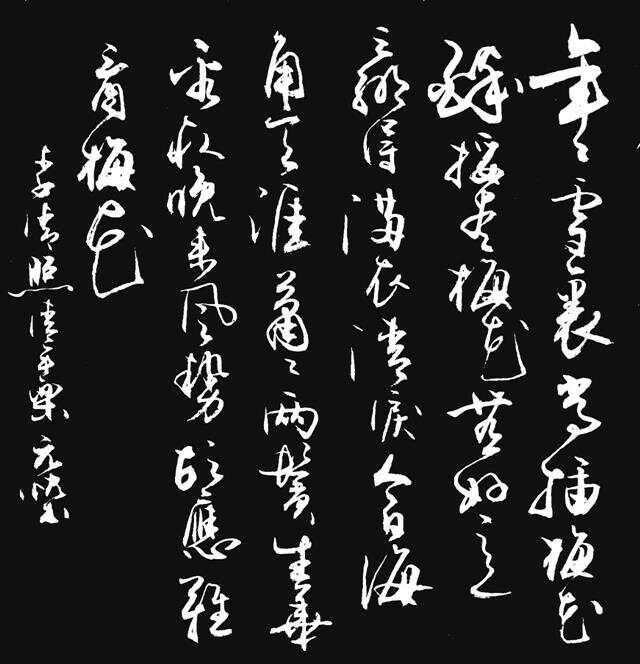 年々雪裏常插梅花
醉挼盡梅花無好意
贏得滿衣清淚今年海
角天涯蕭々兩鬢生華
看取晚來風勢故應難
看梅花
李清照清平樂